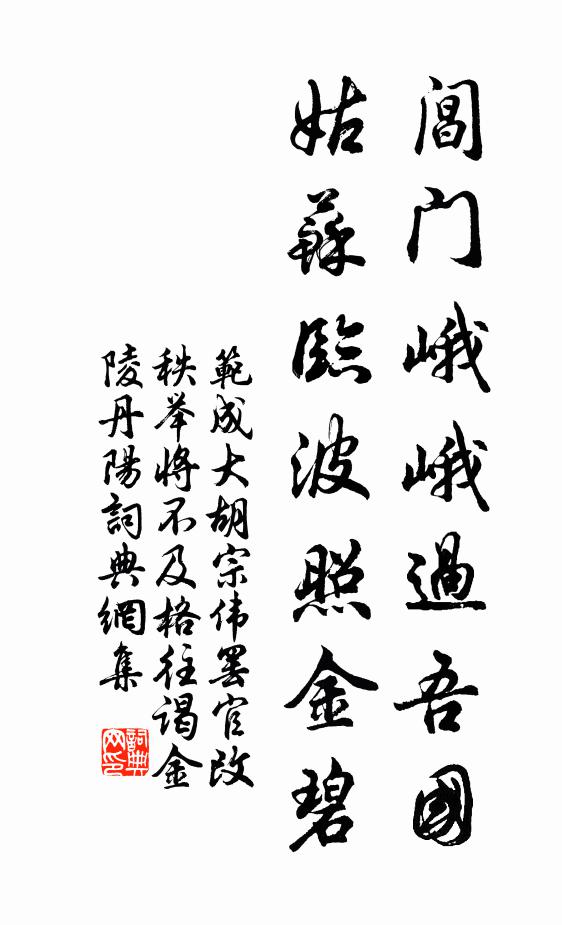 閶门峨峨過吾國
姑蘇臨波照金碧
範成大胡宗伟罢官改
秩举將不及格往谒金
陵丹陽詞典網集
詞典
网印